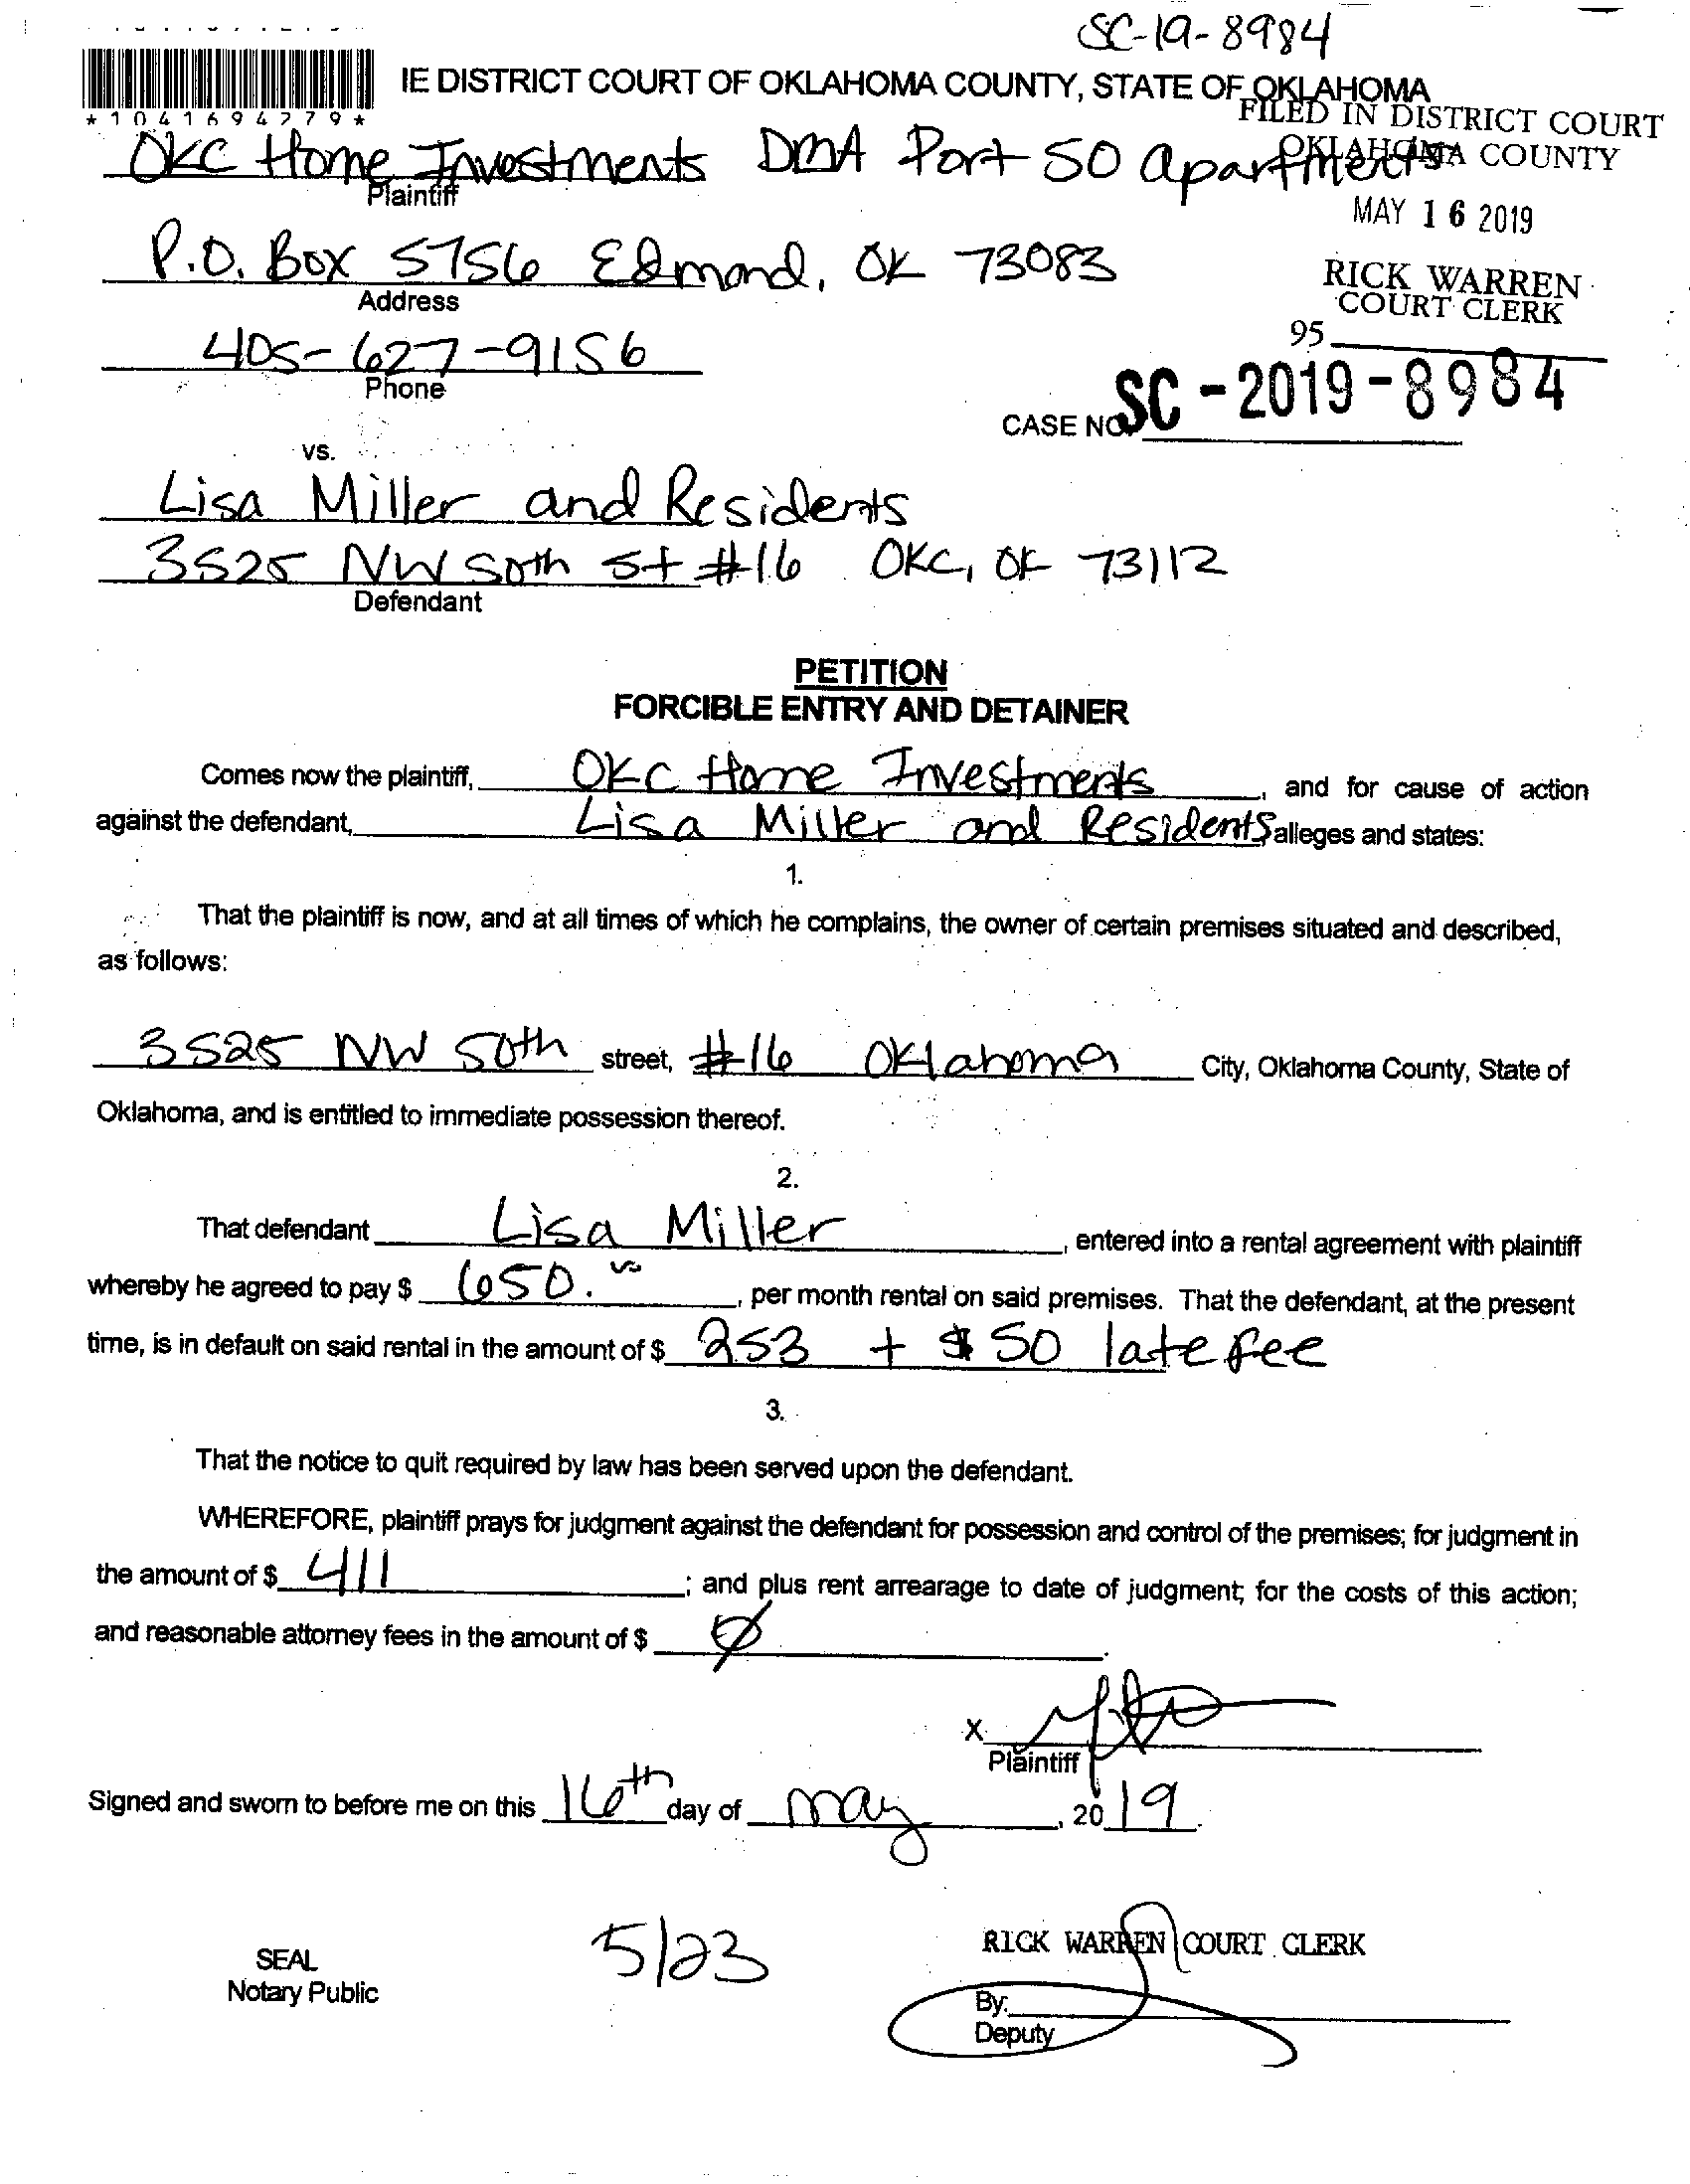 SC-19-8984
IE DISTRICT COURT OF OKLAHOMA COUNTY, STATE OF OKLAHOMA
*1041694779*
FILED IN DISTRICT COURT
OKLAHOMA COUNTY
OKC Home Investments DMA Port 50 apartments
Plaintiff
MAY 16 2019
P.O. Box 5756 Edmond, OK 73083
Address
RICK WARREN
COURT CLERK
95
405-627-9156
Phone
CASE NO. SC-2019-8984
vs.
Lisa Miller and Residents
3525 NW 50th St #16 OKC, OK 73112
Defendant
PETITION
FORCIBLE ENTRY AND DETAINER
Comes now the plaintiff, OKC Home Investments, and for cause of action
against the defendant, Lisa Miller and Residents alleges and states:
1.
That the plaintiff is now, and at all times of which he complains, the owner of certain premises situated and described,
as follows:
3525 NW 50th street, #16 Oklahoma City, Oklahoma County, State of
Oklahoma, and is entitled to immediate possession thereof.
2.
That defendant Lisa Miller, entered into a rental agreement with plaintiff
whereby he agreed to pay $ 650.00, per month rental on said premises. That the defendant, at the present
time, is in default on said rental in the amount of $ 253 + $50 late fee
3.
That the notice to quit required by law has been served upon the defendant.
WHEREFORE, plaintiff prays for judgment against the defendant for possession and control of the premises; for judgment in
the amount of $ 411; and plus rent arrearage to date of judgment; for the costs of this action;
and reasonable attorney fees in the amount of $ Ø.
X
Plaintiff
Signed and sworn to before me on this 16th day of may, 2019.
5/23
RICK WARREN COURT CLERK
SEAL
Notary Public
By:
Deputy